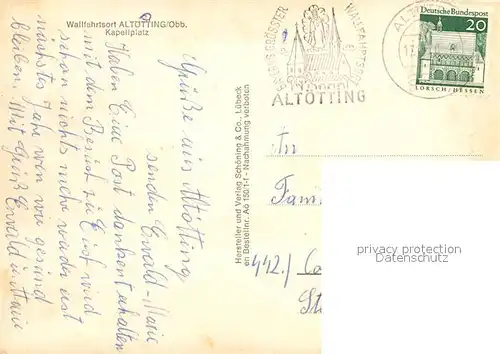 Wallfahrtsort ALTÖTTING/Obb.
Kapellplatz
Grüße aus Altötting
senden Ewald - Marie
Haben Eure Post dankend erhalten
mit dem Besuch zu Euch wird
schon nichts mehr werden erst
nächstes Jahr wen wir gesund
bleiben. Mit Gruß Ewald u Marie
Hersteller und Verlag Schöning & Co., Lübeck
en Bestellnr. Aö 150/1-f - Nachahmung verboten
WALLFAHRTSORT
ALTÖTTING
Deutsche Bundespost
20
LORSCH/HESSEN
An
Fami
442./
St
privacy protection
Datenschutz